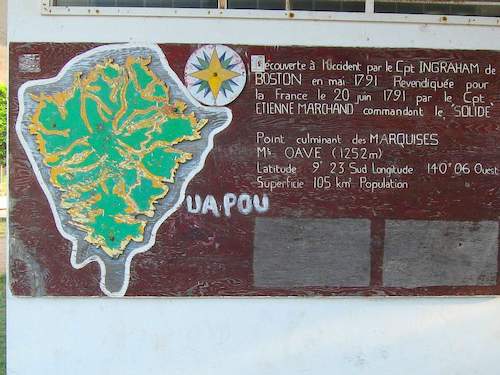 Découverte à l'Occident par le Cpt INGRAHAM de
BOSTON en mai 1791. Revendiquée pour
la France le 20 juin 1791 par le Cpt.
ETIENNE MARCHAND commandant le "SOLIDE
Point culminant des MARQUISES
Mt OAVE (1252m)
Latitude 9° 23 Sud Longitude 140° 06 Ouest
Superficie 105 km² Population
UA POU